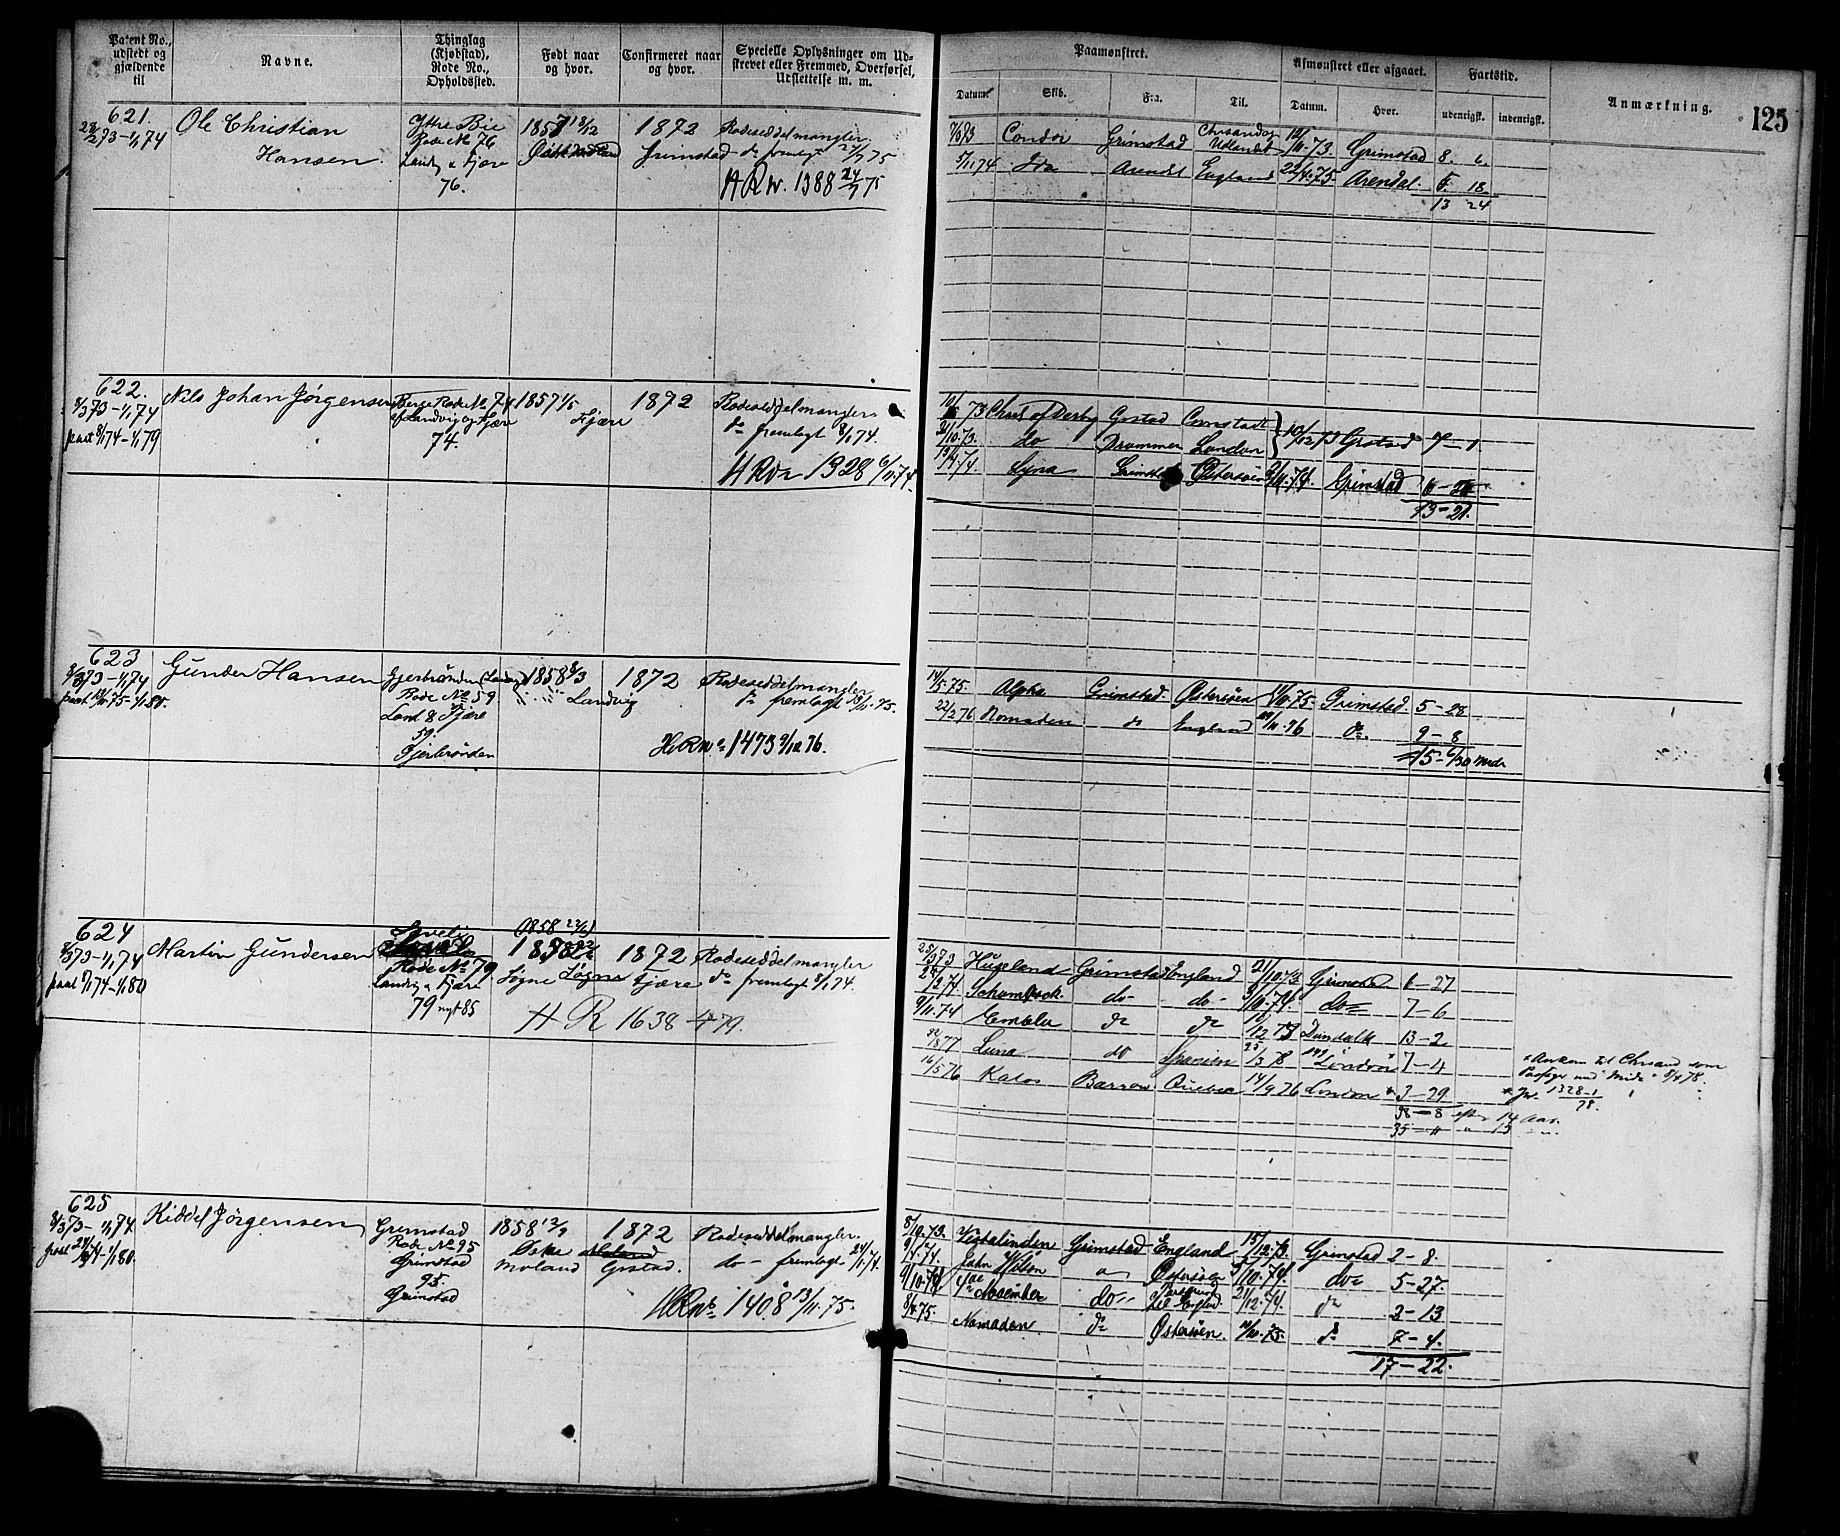 Patent No., udstedt og gjældende til
Navne.
Thinglag (Kjøbstad), Rode No., Opholdssted.
Født naar og hvor.
Confirmeret naar og hvor.
Specielle Oplysninger om Udskrevet eller Fremmed, Overførsel, Udslettelse m. m.
Paamønstret.
Datum. Skib. Fra. Til.
Afmønstret eller afgaaet.
Datum. Hvor.
Fartstid.
udenrigsk. indenrigsk.
Anmærkning.
125
621.
28/2 73 - 1/1 74
Ole Christian
Hansen.
Yttre Bie
Rode No 76
Landv. & Fjære
76.
1857 18/12
1872
Grimstad
Rodeseddel mangler
do fremlagt 24/7 75
H R No. 1388 24/7 75
7/6 73 Condor Grimstad Chrsand og Udlandet /11. 73. Grimstad 8. 6.
5/11 74 Ida Arendl England 22/4. 75. Arendal. 5. 18.
13 24
622.
8/3 73 - 1/1 74
paat 8/1 74 - 1/1 79
Nils Johan Jørgensen
Berge Rode No 74
af Landvig og Fjære
74.
1857 1/5
Fjære
1872
Rodeseddel mangler
do fremlagt 8/1 74.
H R No 1328 6/11 74.
10/5 73 Charl of Derby Grstad Cronstadt
21/10. 73. do Drammen London 10/12 73 Grstad 7 - 1
13/4 74. Lyna Grimstd Østersøen 9/11. 74. Grimstad 6 - 20
13 - 21.
623
8/3 73 - 1/1 74
Gunder Hansen
Gjerbrønden (Landvig)
Rode No 59
Land & Fjære
59.
Fjerbrønden
1858 8/3
Landvig
1872
Rodeseddel mangler
do fremlagt 18/11. 75.
H. R No 1473 9/12 76.
14/5. 75. Alpha Grimstad. Østersøen 1/10. 75. Grimstad. 5 - 28
22/2 76 Nomaden do England 29/11. 76 do. 9 - 8
15 - 6/30 Mdr
624
8/3 73 - 1/1 74
paat 8/1 74 - 1/1 80
Martin Gundersen
Rode No 79
Landv. & Fjære
79 nyt 85
(1858 22/6)
Søgne Søgne
1872
Fjære
Rodeseddel mangler
do fremlagt 8/1 74.
H R 1638 - 79.
25/3 73 Hugeland Grimstad England 21/10. 73 Grimstad 6 - 27
2/2 74. do - do - /10. 74. do = 7 - 6
9/11. 74 Embla do do 10/12 75 Dundalk 13 - 2
22/8 77 Luna do Spanien 25/3 78 London 7 - 4
16/5 76 Kalos Barrow Quebec 14/9 76 London * 3 - 29
38 - 8 eft. 14 Aar.
35 - 11 " 15 - "
Ankom til Chrsand som
Passager med Mida 8/4 78.
* Jr. 1328 - 1/78.
625
8/3 73 - 1/1 74.
Kiddel Jørgensen
Grimstad
Rode No 95
Grimstad
95.
Grimstad
1858 12/9
Østre
Moland
1872
Grstad.
Rodeseddel mangler.
do - fremlagt 24/1. 74.
H R No. 1408 13/11. 75.
8/10. 73. Vestalinden Grimstad England 15/12. 73. Grimstad 2 - 8.
9/4. 74. John Wilson " Østersøen 5/10. 74. do = 5 - 27.
9/10. 74 4de November do - til Engld. 21/12. 74. do 2 - 13
8/4. 75 Nomaden. do Østersøen. /10. 75. do 7 - 4.
17 - 22.